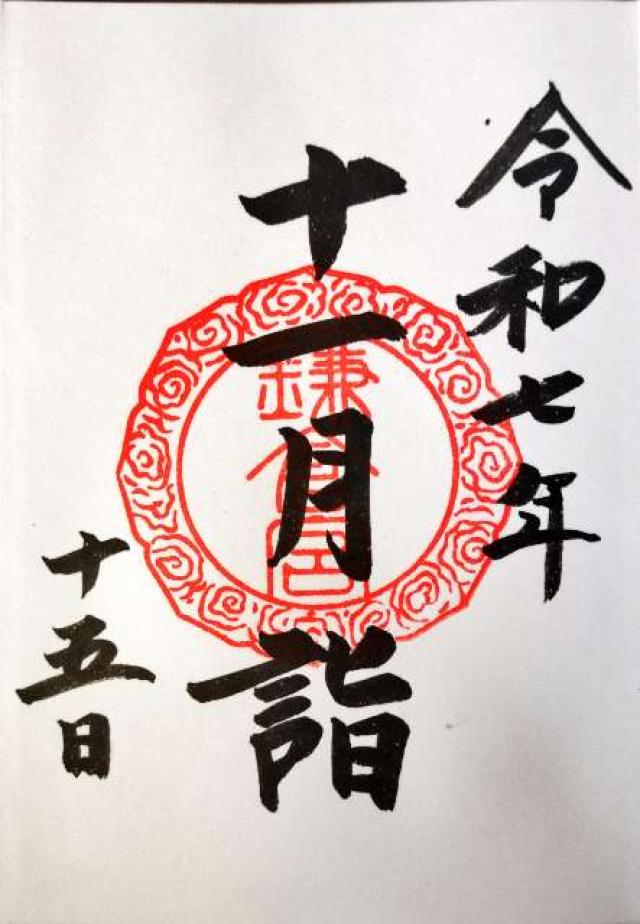 令和七年
十一月詣
鎌倉宮
十五日